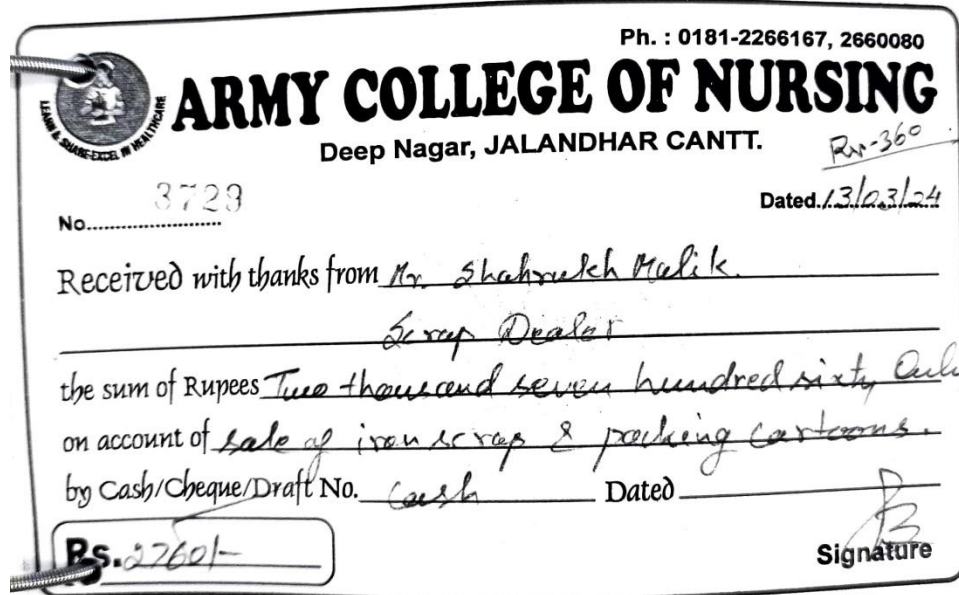 Ph. : 0181-2266167, 2660080
LEARN & SHARE-EXCEL IN HEALTHCARE
ARMY COLLEGE OF NURSING
Deep Nagar, JALANDHAR CANTT.
-360
No. 3729
Dated. 13/03/24
Received with thanks from Mr. Shahrukh Malik.
Scrap Dealer
the sum of Rupees Two thousand seven hundred sixty Only
on account of sale of iron scrap & packing cartoons.
by Cash/Cheque/Draft No. Cash Dated
Rs. 2760/-
Signature